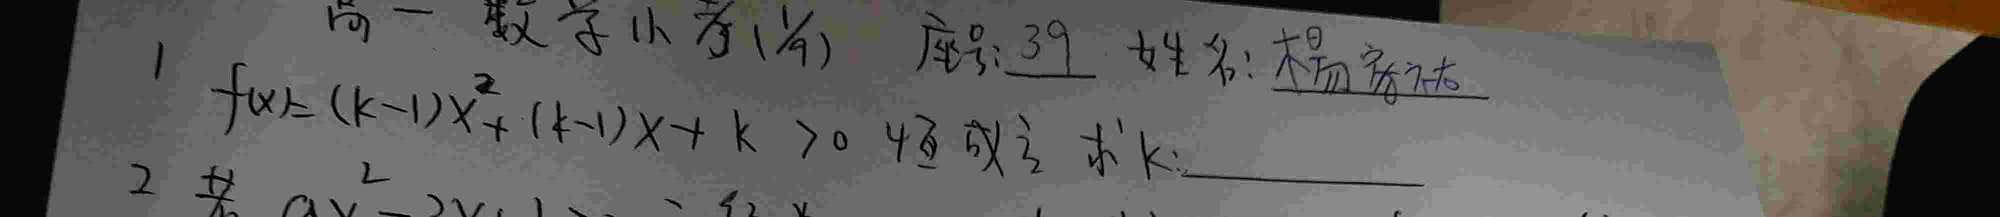 高一数学小考(1/9) 座号:39 姓名:楊
1 f(x)=(k-1)x²+(k-1)x+k>0 恆成立 求k:
2 若 ax²-2x+1>